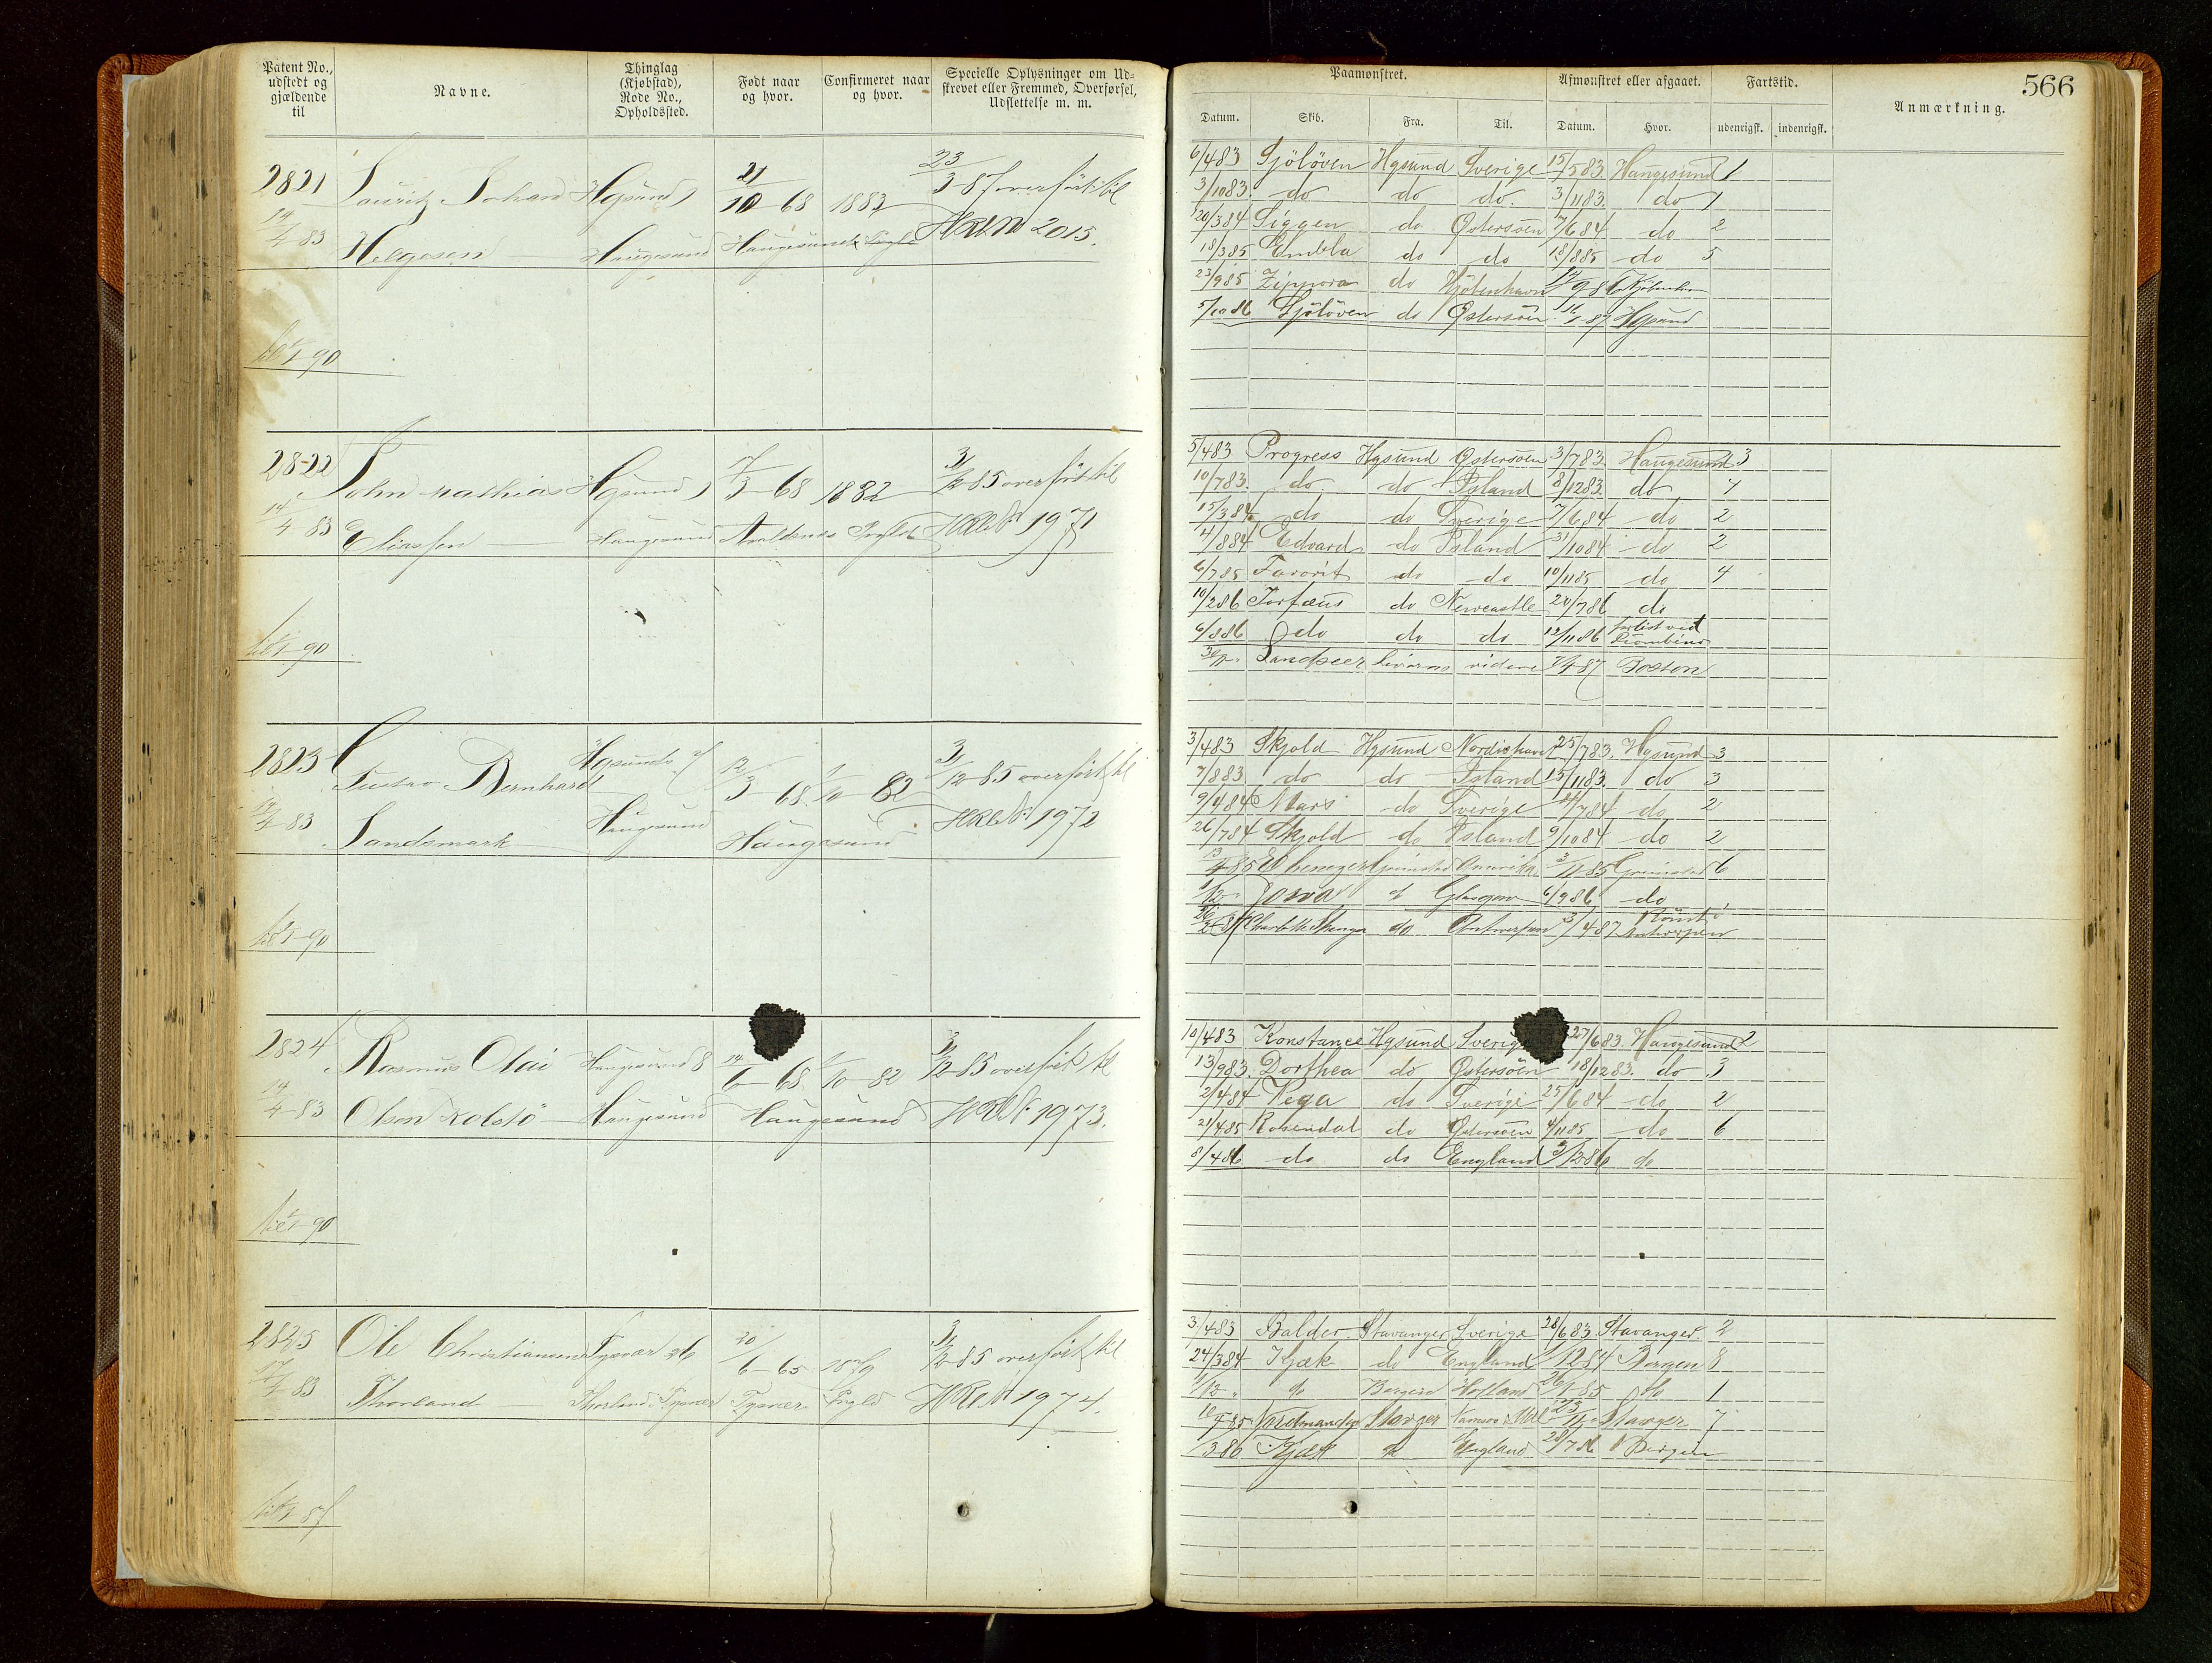 566
Patent No., udstedt og gjældende til
Navne.
Thinglag (Kjøbstad), Rode No., Opholdssted.
Født naar og hvor.
Confirmeret naar og hvor.
Specielle Oplysninger om Udskrevet eller Fremmed, Overførsel, Udslettelse m. m.
Paamønstret.
Afmønstret eller afgaaet.
Fartstid.
Anmærkning.
Datum. Skib. Fra. Til. Datum. Hvor. udenrigsk. indenrigsk.
2821 Lauritz Johan Hgsund 1 21/10 68 1883 23/3 87 overført til
14/4 83 Helgesen Haugesund Haugesund HRN 2015.
til 1/1 90
6/4 83 Sjöløven Hgsund Sverige 15/5 83. Haugesund 1
3/10 83. do do do. 3/11 83. do 1
20/3 84 Siggen do Østersøen 7/6 84 do 2
18/3 85 Embla do do 18/8 85 do 5
23/9 85 Zippora do Kjöbenhavn
5/10 86 Sjöløven do Østersøen Hgsund
2822 John Mathias Hgsund 17/3 68 1882 3/12 85 overført til
14/4 83 Eliassen Haugesund Avaldsnes HRN 1971
til 1/1 90
5/4 83 Progress Hgsund Østersøen 3/7 83 Haugesund 3
10/7 83. do do Island 8/12 83. do 4
15/3 84 do do Sverige 7/6 84 do 2
4/8 84 Edvard do Island 31/10 84 do 2
6/7 85 Favorit do do 10/11 85 do 4
10/2 86 Torfæus do Newcastle 20/7 86 do
6/8 86 do do do 12/11 86 forlist ved Piombino
Landseer Livorno videre 7/4 87 Boston
2823 Gustav Bernhard Hgsund 12/3 68. 1/10 82 3/12 85 overført til
14/4 83 Landsmark Haugesund Haugesund HRN 1972
til 1/1 90
3/4 83 Skjold Hgsund Nordishavet 25/7 83. Hgsund 3
7/8 83 do do Island 15/11 83. do 3
9/4 84 Mars do Sverige 7 84 do 2
26/7 84 Skjold do Island 9/10 84 do 2
13/4 85 Ebenezer Grimstad Amerika 3/11 85 Grimstad 6
1/12 Glasgow 6/9 86 do
Charlotte do Antwerpen 3/4 87 Antwerpen
2824 Rasmus Olai Haugesund 8 14/6 68 1/10 82 3/12 85 overført til
14/4 83 Olsen Kolstö Haugesund Haugesund HRN 1973.
til 1/1 90
10/4 83 Konstance Hgsund Sverige 27/6 83. Haugesund 2
13/9 83. Dorthea do Østersöen 18/12 83. do 3
2/4 84 Vega do Sverige 25/6 84 do 2
21/4 85 Rosendal do Østersøen 4/11 85 do 6
8/4 86 do do England 3/12 86 do
2825 Ole Christiansen Tysvær 26 20/6 65 1879 3/12 85 overført til
17/4 83 Thorland Thorland i Tysvær Tysvær HRN 1974.
3/4 83 Balder. Stavanger Sverige 28/6 83. Stavanger. 2
24/3 84 Kjæk do England 1/12 84 Bergen 8
1/12 " do Bergen 85 do 1
Stavger Stavger 7
3 86 Kjæk do England 28/7 86 Bergen